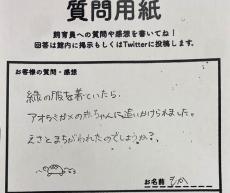 質問用紙
飼育員への質問や感想を書いてね！
回答は館内に掲示もしくはTwitterに投稿します。
お客様の質問・感想
緑の服を着ていたら、
アオウミガメの赤ちゃんに追いかけられました。
えさとまちがわれたのでしょうか？
お名前